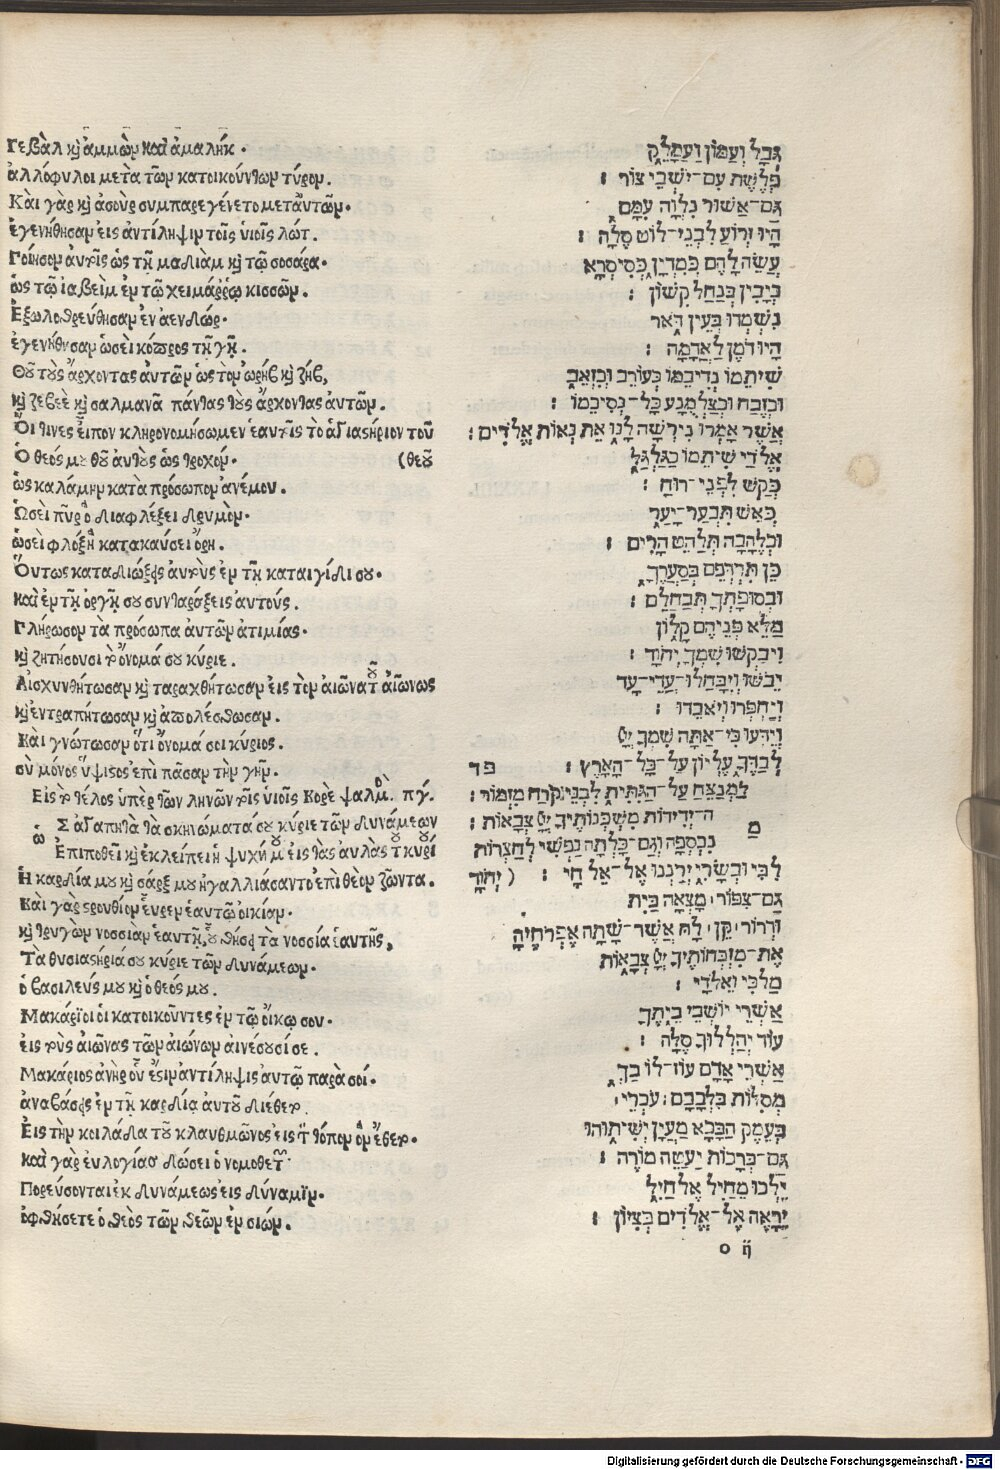 Γεβὰλ κ̀ ἀμμὼν καὶ ἀμαλήκ·
ἀλλόφυλοι μετὰ τῶν κατοικούντων τύρον.
Κὰι γὰρ κ̀ ἀσοὺρ συμπαρεγένετο μετἀυτῶν·
ἐγενήθησαν εις ἀντίληψιν τοῖς ὑιοῖς λώτ.
Ποίησον ἀυτοῖς ὡς τῇ μαδιὰμ κ̀ τῷ σοσάρα·
ὡς τῷ ἰαβεὶμ ἐν τῷ χειμάῤῥῳ κισσῶν.
Εξωλοθρεύθησαν ἐν αενδώρ·
ἐγενήθησαν ὡσεὶ κόπρος τῇ γῇ.
Θοῦ τοὺς ἄρχοντας ἀυτῶν ὡς τὸν ὠρὴβ κ̀ ζὴβ,
κ̀ ζεβεὲ κ̀ σαλμανᾶ πάντας τοὺς ἄρχοντας ἀυτῶν.
Ὅι τινες εἶπον κληρονομήσωμεν ἑαυτοῖς τὸ ἁγιαστήριον τοῦ
Ὁ θεός μου θοῦ ἀυτοὺς ὡς τροχόν· (θεοῦ
ὡς καλάμην κατὰ πρόσωπον ἀνέμου.
Ὡσεὶ πῦρ ὃ διαφλέξει δρυμὸν·
ὡσεὶ φλὸξ ἣ κατακαύσει ὄρη.
Ὅυτως καταδιώξεις ἀυτοὺς ἐν τῇ καταιγίδι σου·
καὶ ἐν τῇ ὀργῇ σου συνταράξεις ἀυτούς.
Πλήρωσον τὰ πρόσωπα ἀυτῶν ἀτιμίας·
κ̀ ζητήσουσι τὸ ὄνομά σου κύριε.
Αἰσχυνθήτωσαν κ̀ ταραχθήτωσαν ἐις τὸν αἰῶνα τοῦ αἰῶνος
κ̀ ἐντραπήτωσαν κ̀ ἀπολέσθωσαν.
Κὰι γνώτωσαν ὅτι ὄνομά σοι κύριος.
σὺ μόνος ὕψιστος ἐπὶ πᾶσαν τὴν γῆν.
Εἰς τὸ τέλος ὑπὲρ τῶν ληνῶν τοῖς ὑιοῖς Κορὲ ψαλμὸ. πγ.
ὡ Σ ἀγαπητὰ τὰ σκηνώματά σου κύριε τῶν δυνάμεων
Ἐπιποθεῖ κ̀ ἐκλείπει ἡ ψυχή μου εἰς τὰς ἀυλὰς τοῦ κυρίου
Ἡ καρδία μου κ̀ σάρξ μου ἠγαλλιάσαντο ἐπὶ θεὸν ζῶντα.
Κὰι γὰρ στρουθίον εὗρεν ἑαυτῷ οἰκίαν·
κ̀ τρυγὼν νοσσιὰν ἑαυτῇ, οὗ θήσει τὰ νοσσία ἑαυτῆς,
Τὰ θυσιαστήριά σου κύριε τῶν δυνάμεων·
ὁ βασιλεύς μου κ̀ ὁ θεός μου.
Μακάριοι οἱ κατοικοῦντες ἐν τῷ οἴκῳ σου·
εἰς τοὺς αἰῶνας τῶν αἰώνων ἀινέσουσί σε.
Μακάριος ἀνὴρ οὗ ἐστιν ἀντίληψις ἀυτῷ παρὰ σοί·
ἀναβάσεις ἐν τῇ καρδίᾳ ἀυτοῦ διέθετο.
Εἰς τὴν κοιλάδα τοῦ κλαυθμῶνος εἰς τὸν τόπον ὃν ἔθετο·
καὶ γὰρ ἐυλογίας δώσει ὁ νομοθετῶν
Πορεύσονται ἐκ δυνάμεως εἰς δύναμιν·
ὀφθήσετε ὁ θεὸς τῶν θεῶν ἐν σιών.
גְּבָל וְעַמּוֹן וַעֲמָלֵק
פְּלֶשֶׁת עִם־יֹשְׁבֵי צוֹר׃
גַּם־אַשּׁוּר נִלְוָה עִמָּם
הָיוּ זְרוֹעַ לִבְנֵי־לוֹט סֶלָה׃
עֲשֵׂה לָהֶם כְּמִדְיָן כְּסִיסְרָא
כְיָבִין בְּנַחַל קִישׁוֹן׃
נִשְׁמְדוּ בְעֵין דֹּאר
הָיוּ דֹמֶן לָאֲדָמָה׃
שִׁיתֵמוֹ נְדִיבֵמוֹ כְּעוֹרֵב וְכִזְאֵב
וּכְזֶבַח וּכְצַלְמֻנָּע כָּל־נְסִיכֵמוֹ׃
אֲשֶׁר אָמְרוּ נִירְשָׁה לָּנוּ אֵת נְאוֹת אֱלֹדִים׃
אֱלֹדַי שִׁיתֵמוֹ כַגַּלְגַּל
כְּקַשׁ לִפְנֵי־רוּחַ׃
כְּאֵשׁ תִּבְעַר־יָעַר
וּכְלֶהָבָה תְּלַהֵט הָרִים׃
כֵּן תִּרְדְּפֵם בְּסַעֲרֶךָ
וּבְסוּפָתְךָ תְבַהֲלֵם׃
מַלֵּא פְנֵיהֶם קָלוֹן
וִיבַקְשׁוּ שִׁמְךָ יְהֹוָד׃
יֵבֹשׁוּ וְיִבָּהֲלוּ־עֲדֵי־עַד
וְיַחְפְּרוּ וְיֹאבֵדוּ׃
וְיֵדְעוּ כִּי־אַתָּה שִׁמְךָ יְיָ
לְבַדֶּךָ עֶלְיוֹן עַל־כָּל־הָאָרֶץ׃ פד
לַמְנַצֵּחַ עַל־הַגִּתִּית לִבְנֵי קֹרַח מִזְמוֹר׃
מַ ה־יְדִידוֹת מִשְׁכְּנוֹתֶיךָ יְיָ צְבָאוֹת׃
נִכְסְפָה וְגַם־כָּלְתָה נַפְשִׁי לְחַצְרוֹת
לִבִּי וּבְשָׂרִי יְרַנְּנוּ אֶל־אֵל חָי׃ (יְהֹוָד
גַּם־צִפּוֹר מָצְאָה בַיִת
וּדְרוֹר קֵן לָהּ אֲשֶׁר־שָׁתָה אֶפְרֹחֶיהָ
אֶת־מִזְבְּחוֹתֶיךָ יְיָ צְבָאוֹת
מַלְכִּי וֵאלֹדָי׃
אַשְׁרֵי יוֹשְׁבֵי בֵיתֶךָ
עוֹד יְהַלְלוּךָ סֶּלָה׃
אַשְׁרֵי אָדָם עוֹז־לוֹ בָךְ
מְסִלּוֹת בִּלְבָבָם׃ עֹבְרֵי
בְּעֵמֶק הַבָּכָא מַעְיָן יְשִׁיתוּהוּ
גַּם־בְּרָכוֹת יַעְטֶה מוֹרֶה׃
יֵלְכוּ מֵחַיִל אֶל חָיִל
יֵרָאֶה אֶל־אֱלֹדִים בְּצִיּוֹן׃
o ij
Digitalisierung gefördert durch die Deutsche Forschungsgemeinschaft - DFG